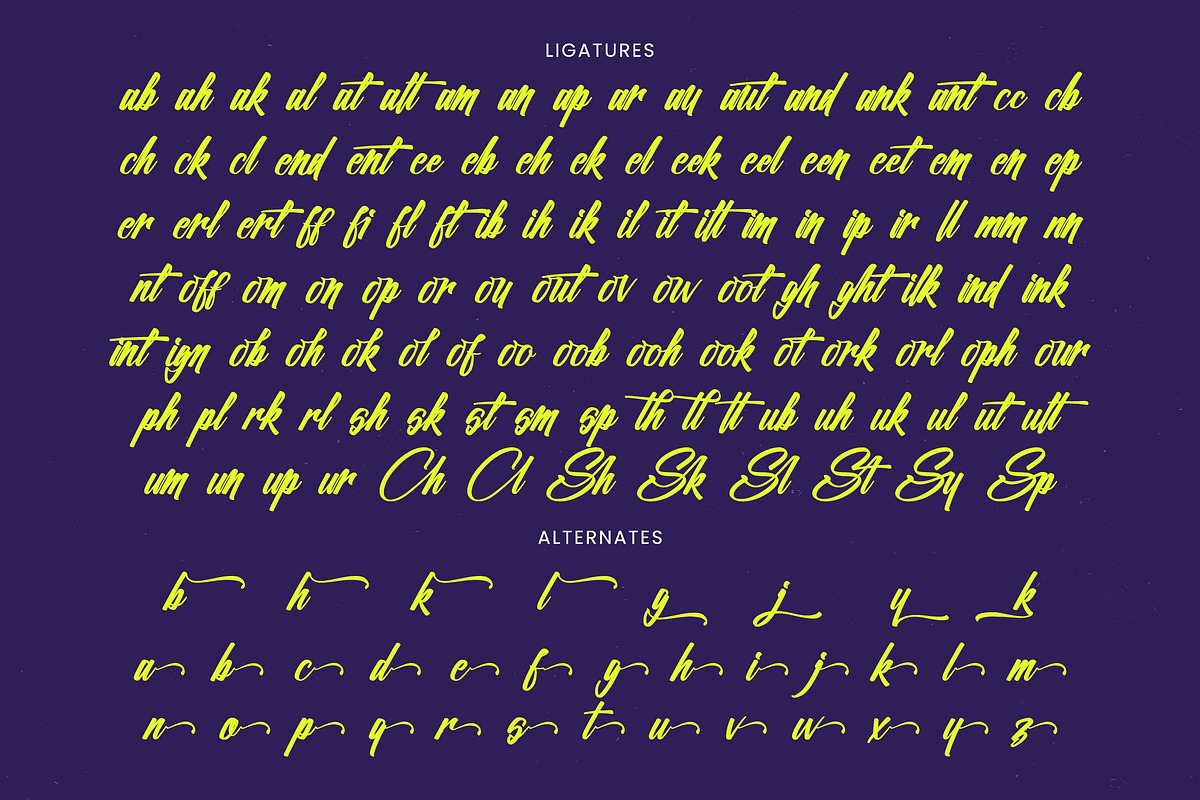 LIGATURES
ab ah ak al at att am an ap ar au aut and ank ant cc cb
ch ck cl end ent ee eb eh ek el eek eel een eet em en ep
er erl ert ff fi fl ft ib ih ik il it itt im in ip ir ll mm nn
nt off om on op or ou out ov ow oot gh ght ilk ind ink
int ign ob oh ok ol of oo oob ooh ook ot ork orl oph our
ph pl rk rl sh sk st sm sp th tl tt ub uh uk ul ut utt
um un up ur Ch Cl Sh Sk Sl St Sy Sp
ALTERNATES
b h k l g j y k
a b c d e f g h i j k l m
n o p q r s t u v w x y z